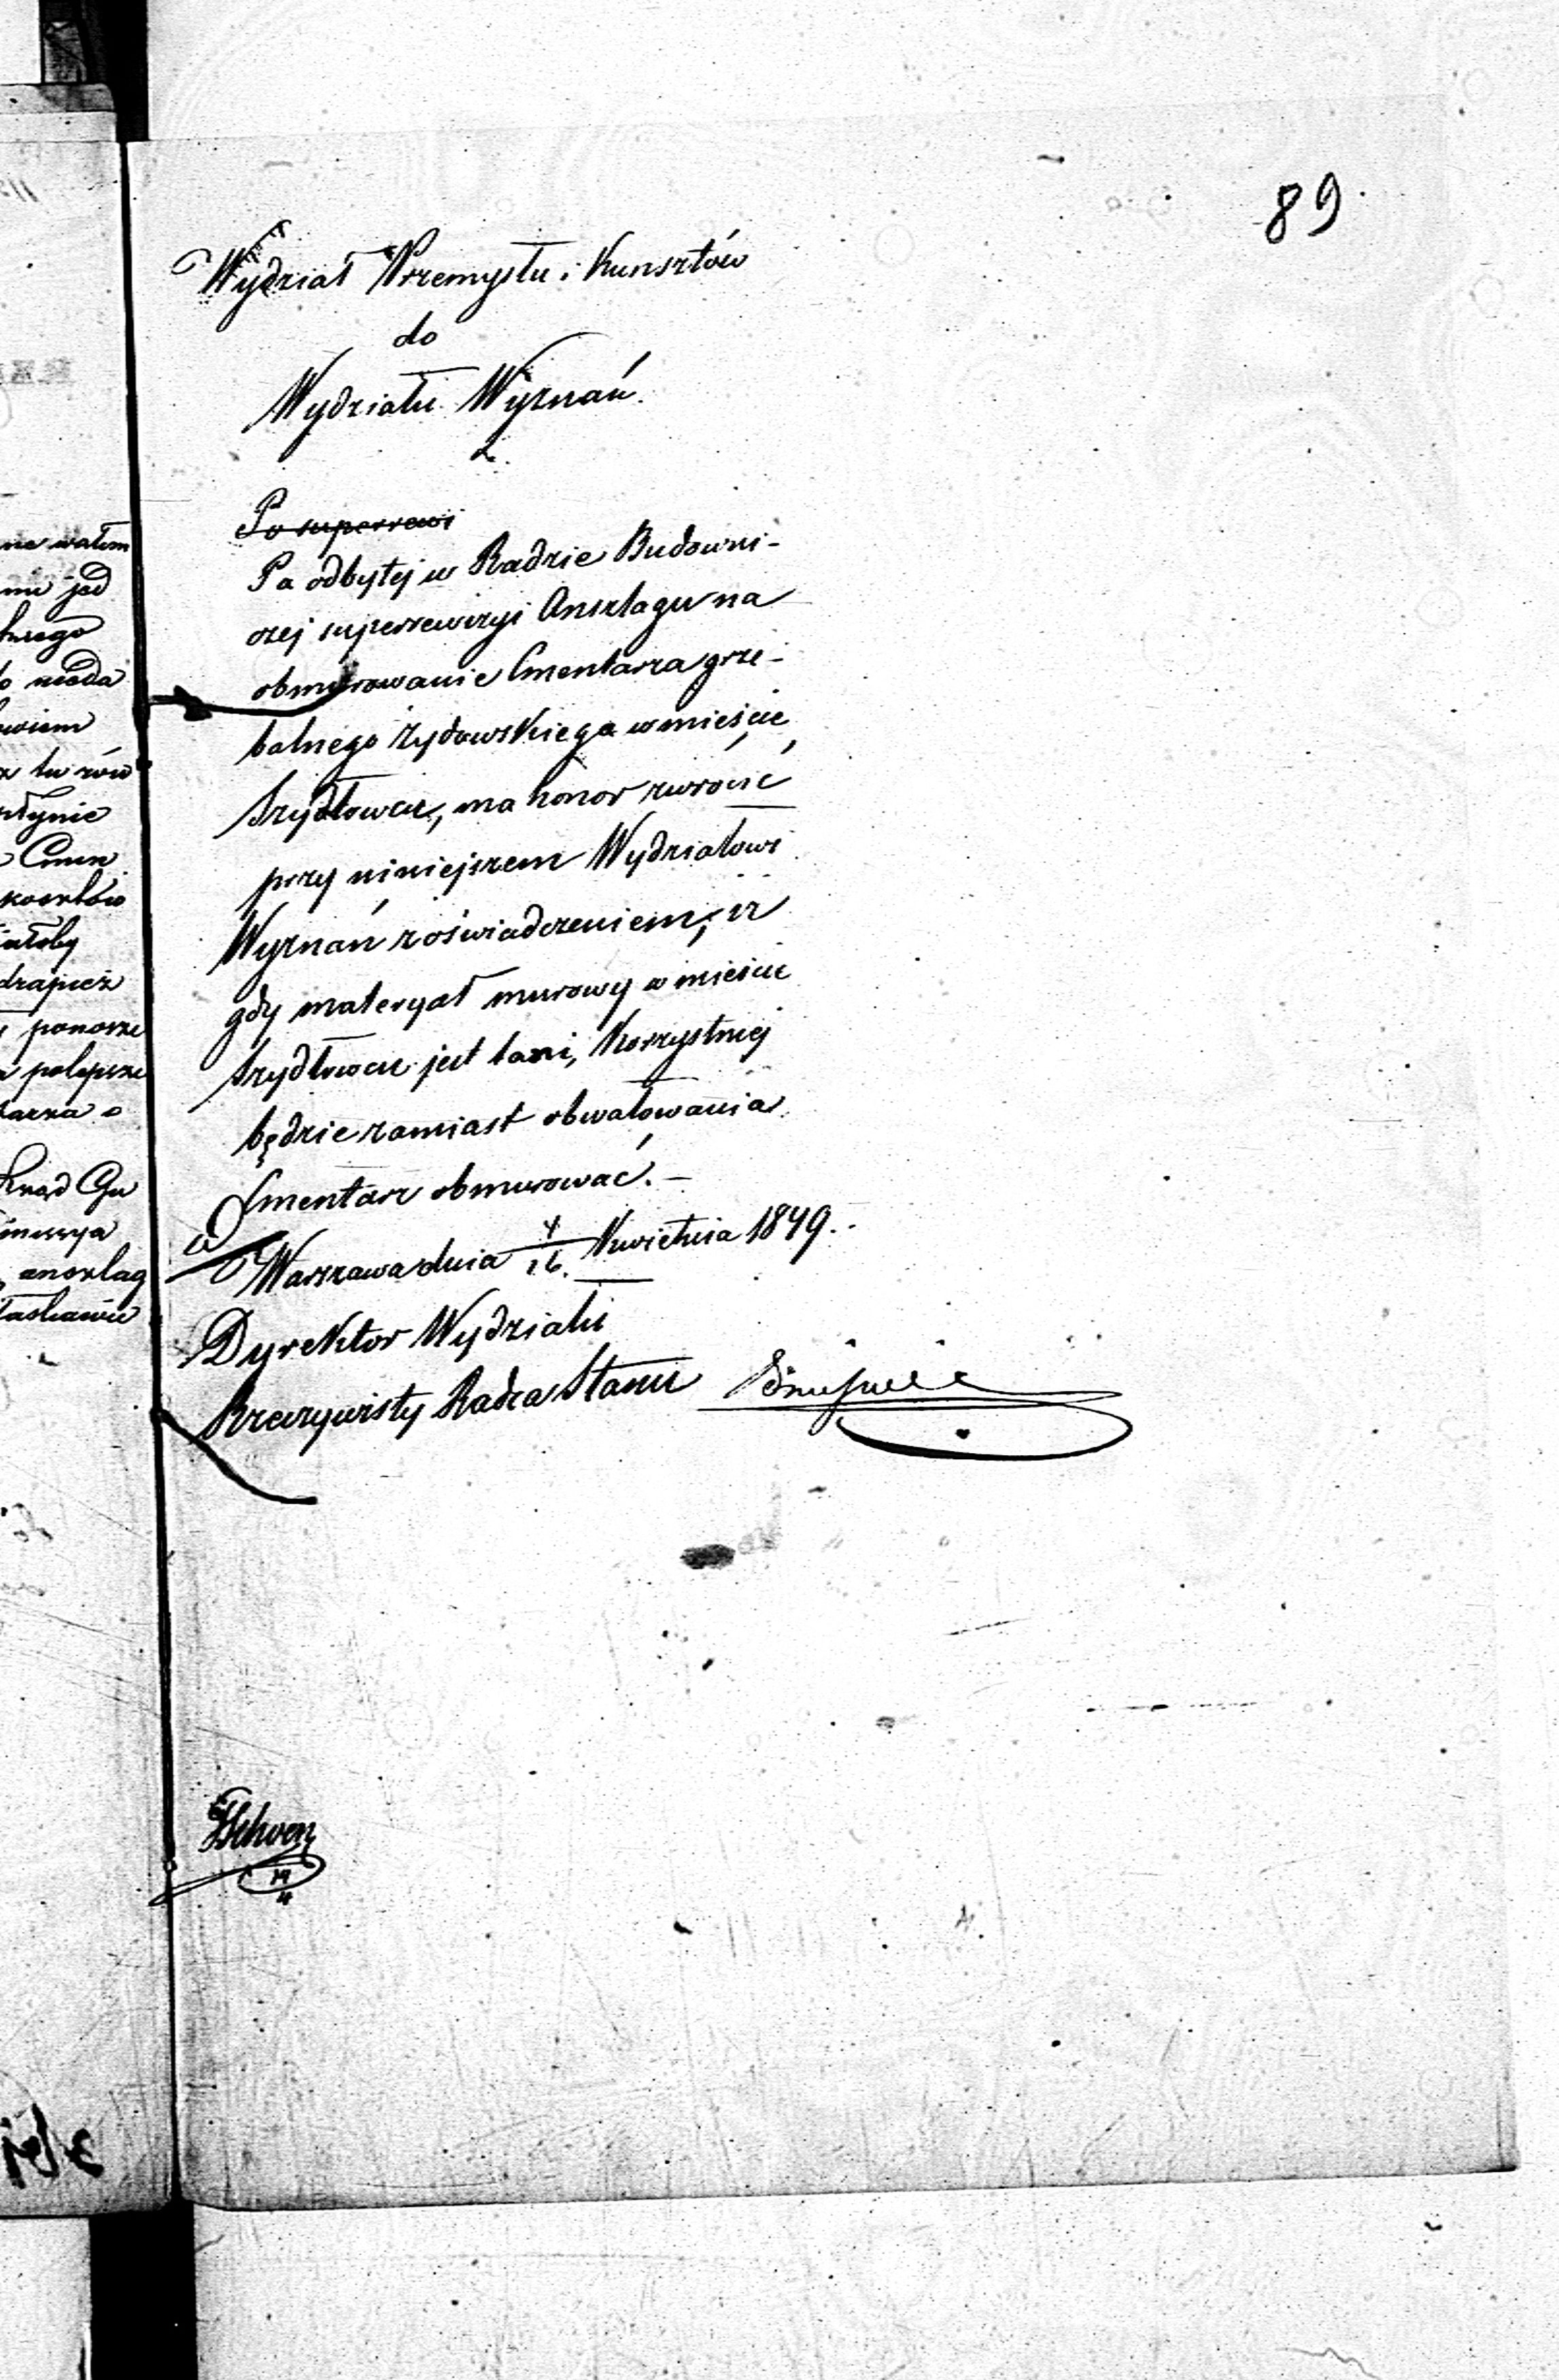 89
Wydział Przemysłu i Kunsztów
do
Wydziału Wyznań.
Po superrewi
Po odbytej w Radzie Budowni-
czej superrewizyi Anszlagu na
obmurowanie Cmentarza grze-
balnego żydowskiego w mieście
Szydłowcu, ma honor zwrócić
przy niniejszem Wydziałowi
Wyznań z oświadczeniem, iż
gdy materyał murowy w mieście
Szydłowcu jest tani, korzystniej
będzie zamiast obwałowania
Cmentarz obmurować. —
w Warszawa dnia 4/16. Kwietnia 1849.
Dyrektor Wydziału
Rzeczywisty Radca Stanu
ne wałem
nie jed
o nieda
owiem
x tu rów
Cmen
drapież
ponosze
polepsze
tarza o
Rząd Gu
anszlag
łaskawie